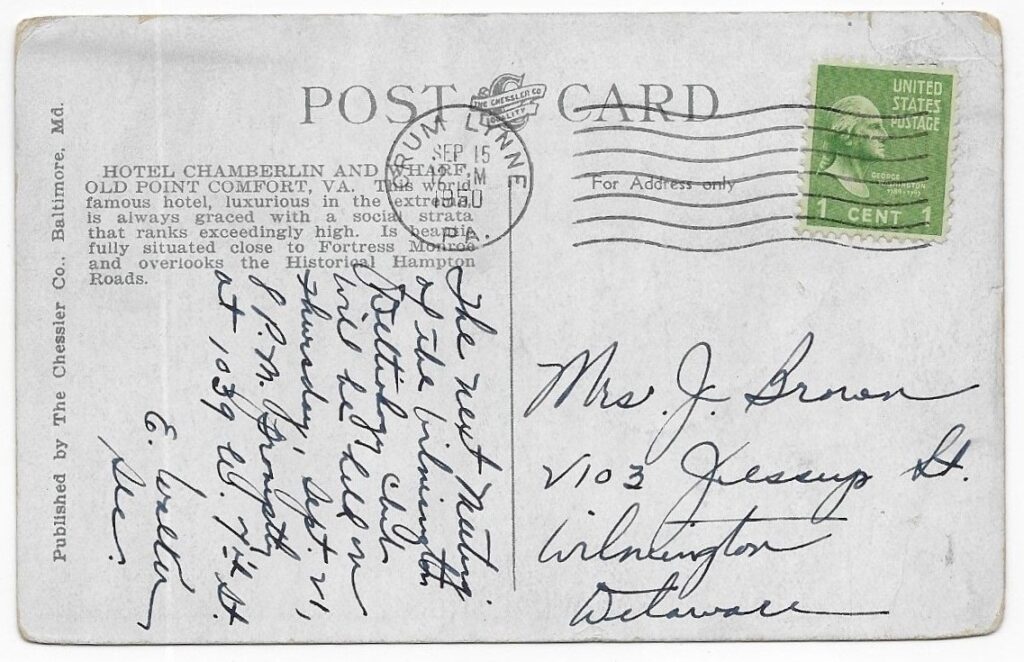 POST CARD
THE CHESSLER CO
QUALITY
CRUM LYNNE
SEP 15
1950
PA.
UNITED
STATES
POSTAGE
GEORGE
WASHINGTON
1789-1797
1 CENT 1
For Address only
Published by The Chessler Co., Baltimore, Md.
HOTEL CHAMBERLIN AND WHARF,
OLD POINT COMFORT, VA. This world
famous hotel, luxurious in the extreme,
is always graced with a social strata
that ranks exceedingly high. Is beauti-
fully situated close to Fortress Monroe
and overlooks the Historical Hampton
Roads.
The next Meeting
of the Wilmington
Deltiology Club
will be held on
Thursday, Sept. 21,
8 P.M.
at 1039 W. 7th St.
E. Walter
Sec.
Mrs. J. Brown
2103 Jessup St.
Wilmington
Delaware